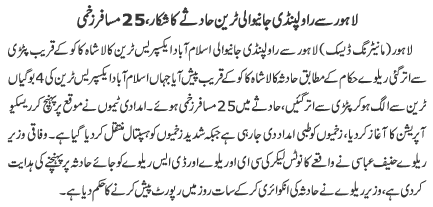 لاہور سے راولپنڈی جانیوالی ٹرین حادثے کا شکار، 25 مسافر زخمی
لاہور (مانیٹرنگ ڈیسک) لاہور سے راولپنڈی جانیوالی اسلام آباد ایکسپریس ٹرین کالا شاہ کاکو کے قریب پٹڑی
سے اتر گئی ریلوے حکام کے مطابق حادثہ کالا شاہ کاکو کے قریب پیش آیا جہاں اسلام آباد ایکسپریس ٹرین کی 4 بوگیاں
ٹرین سے الگ ہو کر پٹڑی سے اتر گئیں، حادثے میں 25 مسافر زخمی ہوئے۔ امدادی ٹیموں نے موقع پر پہنچ کر ریسکیو
آپریشن کا آغاز کر دیا، زخمیوں کو طبی امداد دی جا رہی ہے جبکہ شدید زخمیوں کو ہسپتال منتقل کر دیا گیا ہے۔ وفاقی وزیر
ریلوے حنیف عباسی نے واقعے کا نوٹس لیکر سی ای او ریلوے اور ڈی ایس ریلوے کو جائے حادثہ پر پہنچنے کی ہدایت
کر دی ہے، وزیر ریلوے نے حادثہ کی انکوائری کر کے سات روز میں رپورٹ پیش کرنے کا حکم دیا ہے۔